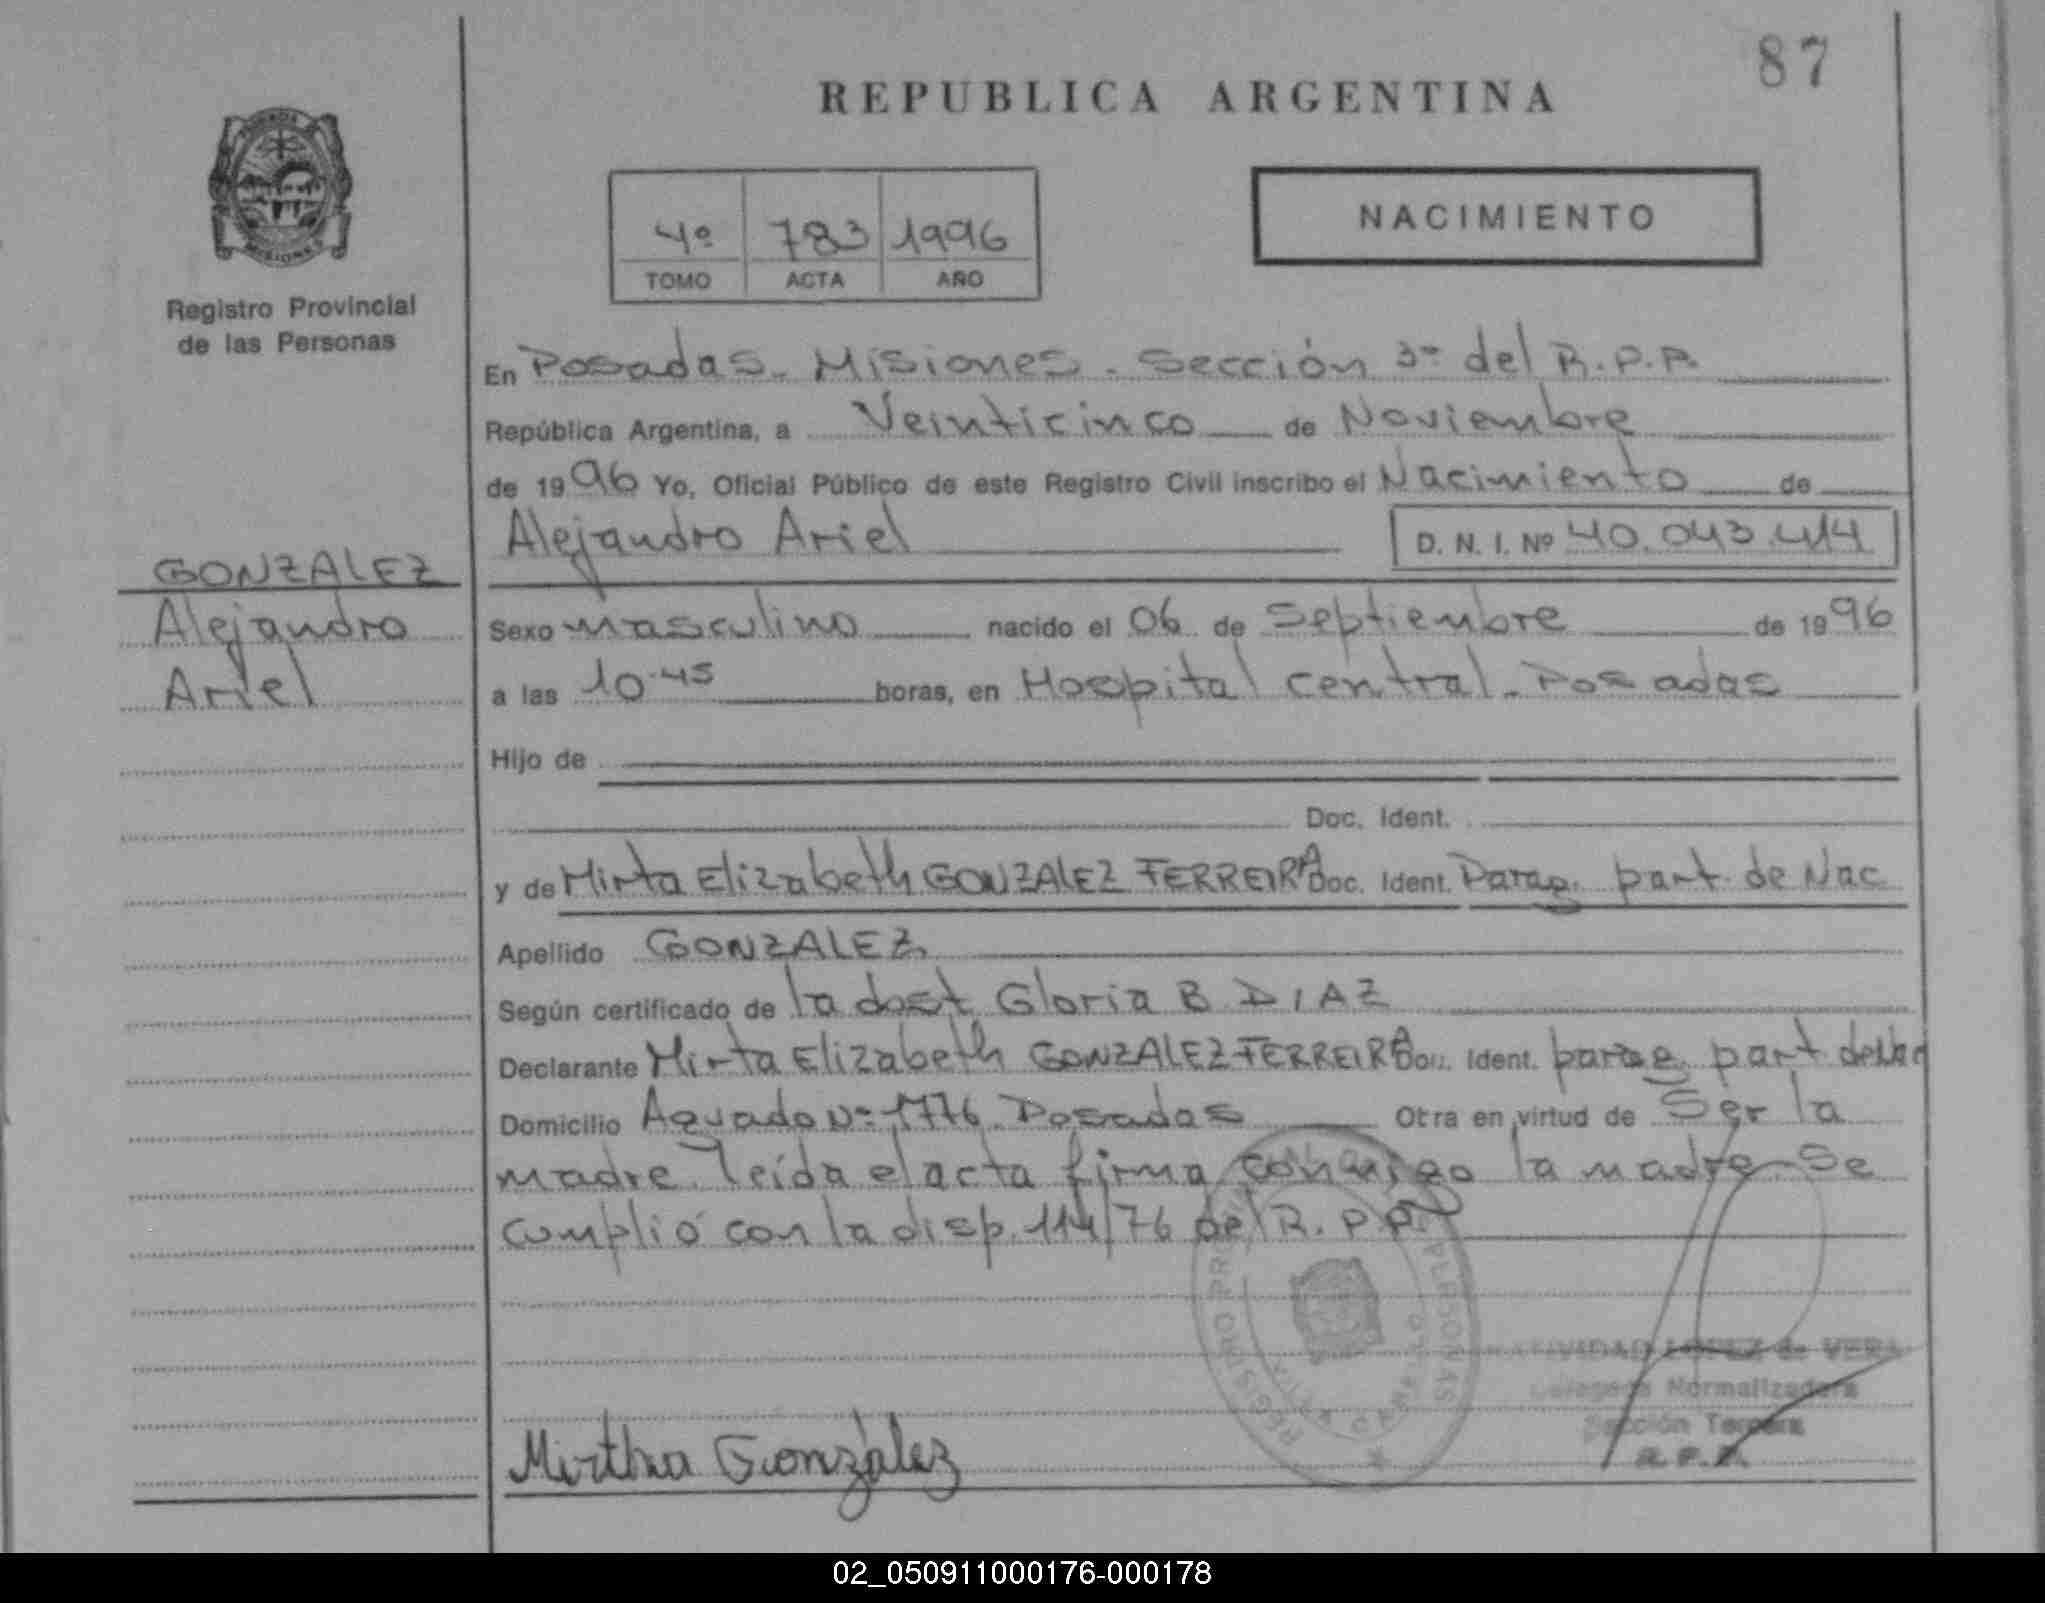 87
REPUBLICA ARGENTINA
4º 783 1996
TOMO ACTA AÑO
NACIMIENTO
Registro Provincial
de las Personas
En Posadas. Misiones. Sección 3ª del R.P.P.
República Argentina, a Veinticinco de Noviembre
de 1996 Yo, Oficial Público de este Registro Civil inscribo el Nacimiento de
Alejandro Ariel D. N. I. Nº 40.043.414
GONZALEZ
Alejandro
Ariel
Sexo masculino nacido el 06 de Septiembre de 1996
a las 10.45 horas, en Hospital central. Posadas
Hijo de
Doc. Ident.
y de Mirta Elizabeth GONZALEZ FERREIRA Doc. Ident. Parag. part. de Nac
Apellido GONZALEZ
Según certificado de la dost Gloria B DIAZ
Declarante Mirta Elizabeth GONZALEZ FERREIRA Doc. Ident. parag. part de Nac
Domicilio Aguado Nº 1776. Posadas Otra en virtud de Ser la
madre. leída el acta firma conmigo la madre. Se
cumplió con la disp. 114/76 del R.P.P.
REGISTRO PERSONAS
NATIVIDAD LOPEZ de VERA
Delegada Normalizadora
Sección Tercera
R.P.P.
Mirtha González
02_050911000176-000178